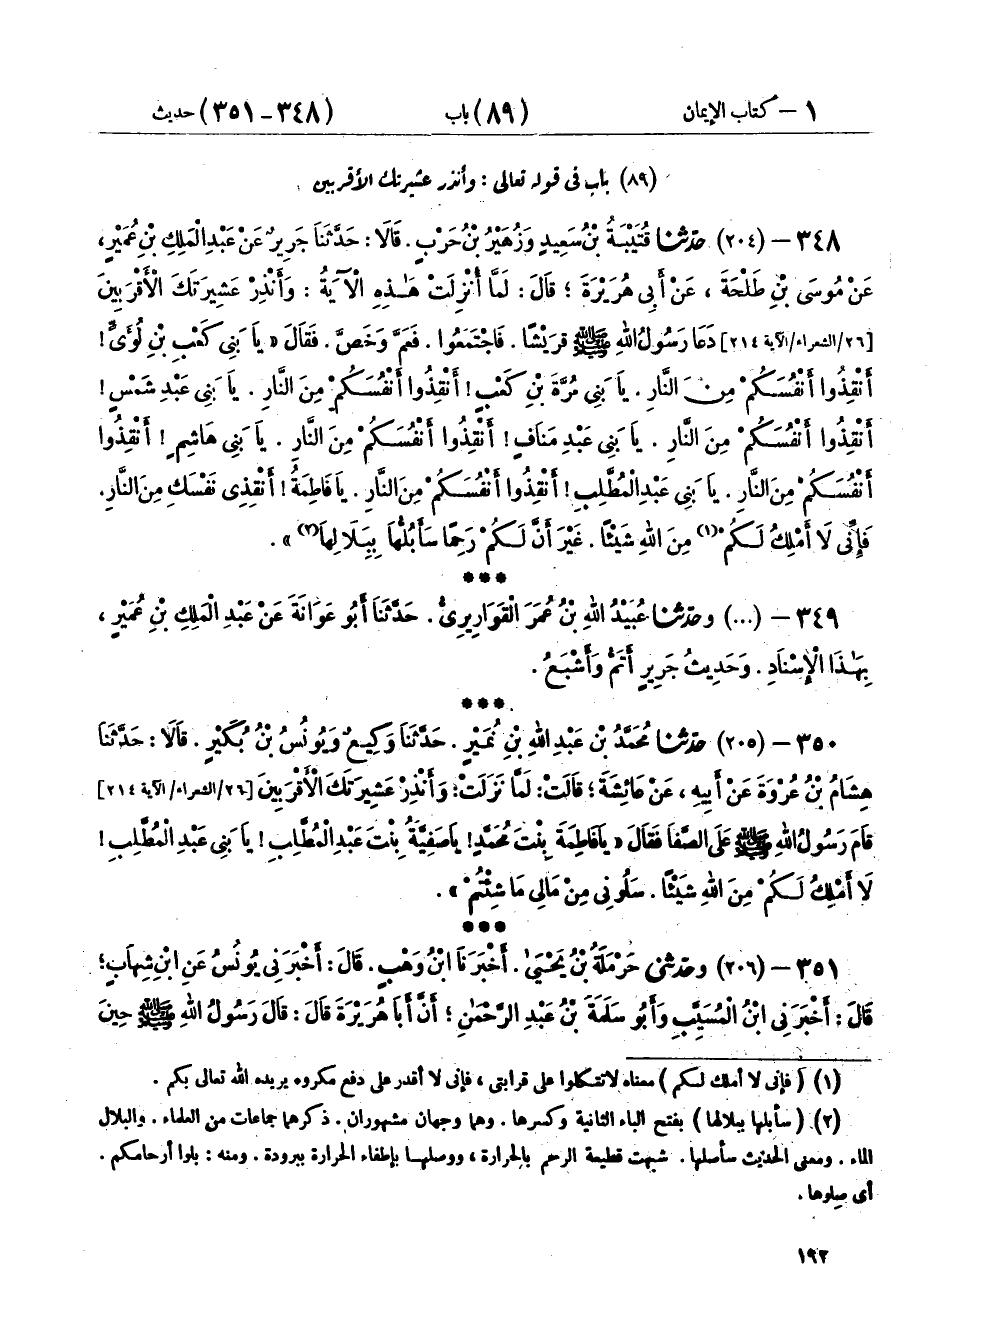 ١ – كتاب الإيمان (٨٩) باب (٣٤٨-٣٥١) حديث
(٨٩) باب فى قوله تعالى : وأنذر عشيرتك الأقربين
٣٤٨ – (٢٠٤) حَدَّثَنَا قُتَيْبَةُ بْنُ سَعِيدٍ وَزُهَيْرُ بْنُ حَرْبٍ . قَالَا : حَدَّثَنَا جَرِيرٌ عَنْ عَبْدِ الْمَلِكِ بْنِ عُمَيْرٍ ،
عَنْ مُوسَى بْنِ طَلْحَةَ ، عَنْ أَبِى هُرَيْرَةَ ؛ قَالَ : لَمَّا أُنْزِلَتْ هَـٰذِهِ الْآيَةُ : وَأَنْذِرْ عَشِيرَتَكَ الْأَقْرَبِينَ
[٢٦/الشعراء/الآية ٢١٤] دَعَا رَسُولُ اللهِ ﷺ قُرَيْشًا . فَاجْتَمَعُوا . فَعَمَّ وَخَصَّ . فَقَالَ « يَا بَنِى كَعْبِ بْنِ لُؤَىٍّ !
أَنْقِذُوا أَنْفُسَكُمْ مِنَ النَّارِ . يَا بَنِى مُرَّةَ بْنِ كَعْبٍ ! أَنْقِذُوا أَنْفُسَكُمْ مِنَ النَّارِ . يَا بَنِى عَبْدِ شَمْسٍ !
أَنْقِذُوا أَنْفُسَكُمْ مِنَ النَّارِ . يَا بَنِى عَبْدِ مَنَافٍ ! أَنْقِذُوا أَنْفُسَكُمْ مِنَ النَّارِ . يَا بَنِى هَاشِمٍ ! أَنْقِذُوا
أَنْفُسَكُمْ مِنَ النَّارِ . يَا بَنِى عَبْدِ الْمُطَّلِبِ ! أَنْقِذُوا أَنْفُسَكُمْ مِنَ النَّارِ . يَا فَاطِمَةُ ! أَنْقِذِى نَفْسَكِ مِنَ النَّارِ .
فَإِنِّى لَا أَمْلِكُ لَكُمْ(١) مِنَ اللهِ شَيْئًا . غَيْرَ أَنَّ لَكُمْ رَحِمًا سَأَبُلُّهَا بِبَلَالِهَا(٢) » .
***
٣٤٩ – (...) وحَدَّثَنَا عُبَيْدُ اللهِ بْنُ عُمَرَ الْقَوَارِيرِىُّ . حَدَّثَنَا أَبُو عَوَانَةَ عَنْ عَبْدِ الْمَلِكِ بْنِ عُمَيْرٍ ،
بِهَـٰذَا الْإِسْنَادِ . وَحَدِيثُ جَرِيرٍ أَتَمُّ وَأَشْبَعُ .
***
٣٥٠ – (٢٠٥) حَدَّثَنَا مُحَمَّدُ بْنُ عَبْدِ اللهِ بْنِ نُمَيْرٍ . حَدَّثَنَا وَكِيعٌ وَيُونُسُ بْنُ بُكَيْرٍ . قَالَا : حَدَّثَنَا
هِشَامُ بْنُ عُرْوَةَ عَنْ أَبِيهِ ، عَنْ عَائِشَةَ ؛ قَالَتْ : لَمَّا نَزَلَتْ : وَأَنْذِرْ عَشِيرَتَكَ الْأَقْرَبِينَ [٢٦/الشعراء/الآية ٢١٤]
قَامَ رَسُولُ اللهِ ﷺ عَلَى الصَّفَا فَقَالَ « يَا فَاطِمَةَ بِنْتَ مُحَمَّدٍ ! يَا صَفِيَّةُ بِنْتَ عَبْدِ الْمُطَّلِبِ ! يَا بَنِى عَبْدِ الْمُطَّلِبِ !
لَا أَمْلِكُ لَكُمْ مِنَ اللهِ شَيْئًا . سَلُونِى مِنْ مَالِى مَا شِئْتُمْ » .
***
٣٥١ – (٢٠٦) وحَدَّثَنِى حَرْمَلَةُ بْنُ يَحْيَىٰ . أَخْبَرَنَا ابْنُ وَهْبٍ . قَالَ : أَخْبَرَنِى يُونُسُ عَنِ ابْنِ شِهَابٍ ؛
قَالَ : أَخْبَرَنِى ابْنُ الْمُسَيَّبِ وَأَبُو سَلَمَةَ بْنُ عَبْدِ الرَّحْمَـٰنِ ؛ أَنَّ أَبَا هُرَيْرَةَ قَالَ : قَالَ رَسُولُ اللهِ ﷺ حِينَ
(١) ( فإنى لا أملك لكم ) معناه لا تتكلوا على قرابتى ، فإنى لا أقدر على دفع مكروه يريده الله تعالى بكم .
(٢) ( سأبلها ببلالها ) بفتح الباء الثانية وكسرها . وهما وجهان مشهوران . ذكرهما جماعات من العلماء . والبلال
الماء . ومعنى الحديث سأصلها . شبهت قطيعة الرحم بالحرارة ، ووصلها بإطفاء الحرارة ببرودة . ومنه : بلوا أرحامكم .
أى صلوها .
١٩٢